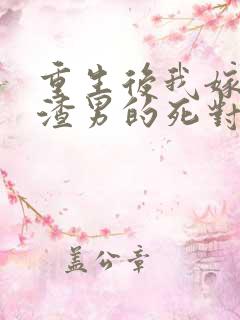 重生後我嫁
渣男的死對
蓋公章